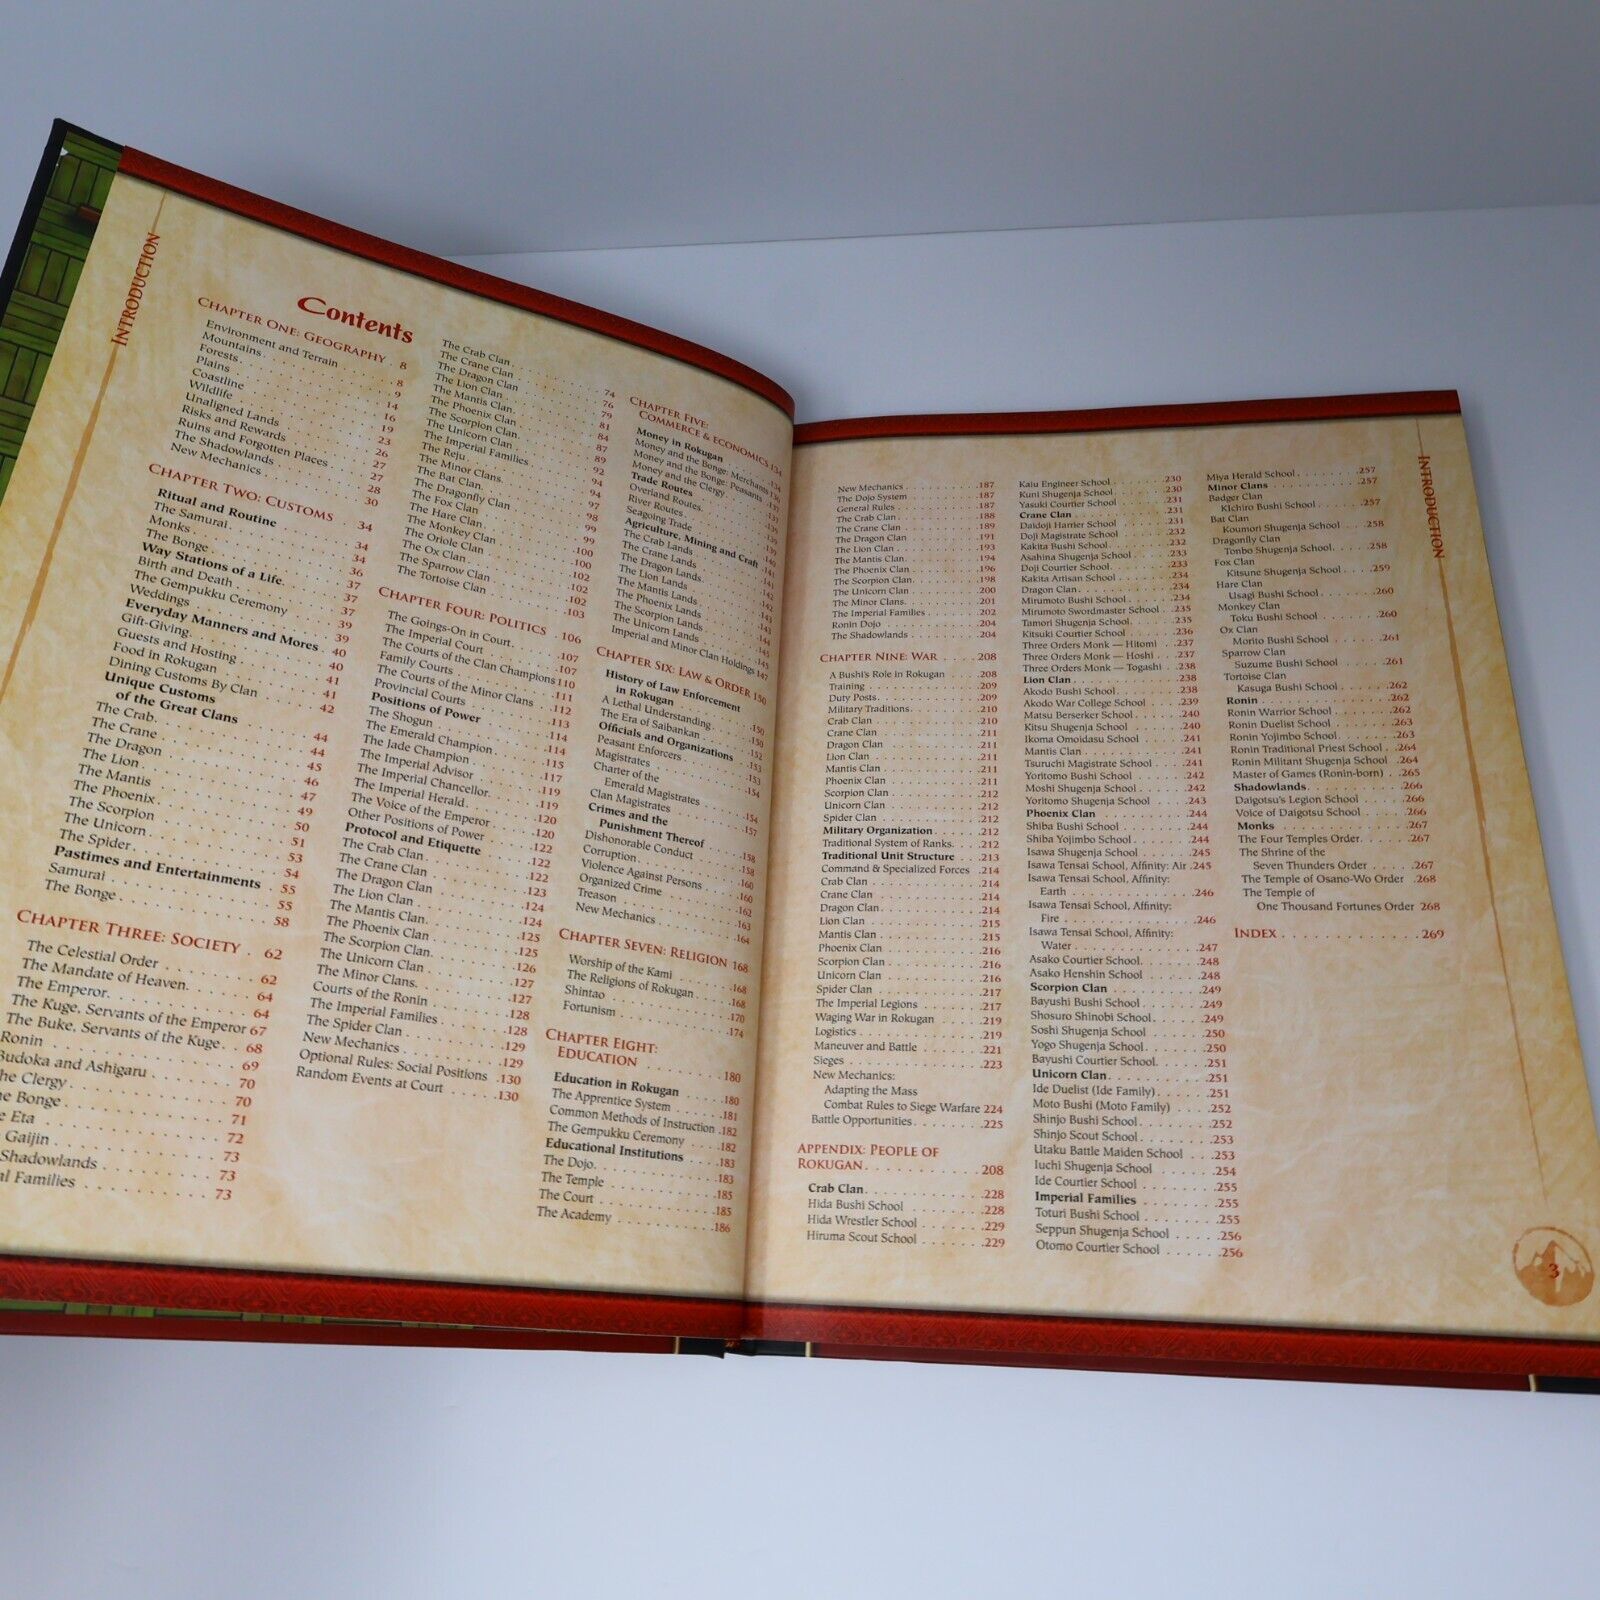 INTRODUCTION
Contents
CHAPTER ONE: GEOGRAPHY . 8
Environment and Terrain . . . 8
Mountains . . . 9
Forests . . . 14
Plains . . . 16
Coastline . . . 19
Wildlife . . . 23
Unaligned Lands . . . 26
Risks and Rewards . . . 27
Ruins and Forgotten Places . . . 27
The Shadowlands . . . 28
New Mechanics . . . 30
CHAPTER TWO: CUSTOMS . 34
Ritual and Routine . . . 34
The Samurai . . . 34
Monks . . . 36
The Bonge . . . 37
Way Stations of a Life . . . 37
Birth and Death . . . 37
The Gempukku Ceremony . . . 39
Weddings . . . 39
Everyday Manners and Mores . 40
Gift-Giving . . . 40
Guests and Hosting . . . 41
Food in Rokugan . . . 41
Dining Customs By Clan . . . 42
Unique Customs
of the Great Clans . . . 44
The Crab . . . 44
The Crane . . . 45
The Dragon . . . 46
The Lion . . . 47
The Mantis . . . 49
The Phoenix . . . 50
The Scorpion . . . 51
The Unicorn . . . 53
The Spider . . . 54
Pastimes and Entertainments . 55
Samurai . . . 55
The Bonge . . . 58
CHAPTER THREE: SOCIETY . 62
The Celestial Order . . . 62
The Mandate of Heaven . . . 64
The Emperor . . . 64
The Kuge, Servants of the Emperor 67
The Buke, Servants of the Kuge . . 68
Ronin . . . 69
Budoka and Ashigaru . . . 70
The Clergy . . . 70
The Bonge . . . 71
The Eta . . . 72
Gaijin . . . 73
Shadowlands . . . 73
Families . . . 73
The Crab Clan . . . 74
The Crane Clan . . . 76
The Dragon Clan . . . 79
The Lion Clan . . . 81
The Mantis Clan . . . 84
The Phoenix Clan . . . 87
The Scorpion Clan . . . 89
The Unicorn Clan . . . 92
The Imperial Families . . . 94
The Reju . . . 94
The Minor Clans . . . 97
The Bat Clan . . . 98
The Dragonfly Clan . . . 99
The Fox Clan . . . 99
The Hare Clan . . . 100
The Monkey Clan . . . 100
The Oriole Clan . . . 102
The Ox Clan . . . 102
The Sparrow Clan . . . 102
The Tortoise Clan . . . 103
CHAPTER FOUR: POLITICS . 106
The Goings-On in Court . . . 107
The Imperial Court . . . 107
The Courts of the Clan Champions 110
Family Courts . . . 111
The Courts of the Minor Clans . . . 112
Provincial Courts . . . 113
Positions of Power . . . 114
The Shogun . . . 114
The Emerald Champion . . . 115
The Jade Champion . . . 117
The Imperial Advisor . . . 119
The Imperial Chancellor . . . 119
The Imperial Herald . . . 120
The Voice of the Emperor . . . 120
Other Positions of Power . . . 122
Protocol and Etiquette . . . 122
The Crab Clan . . . 122
The Crane Clan . . . 123
The Dragon Clan . . . 124
The Lion Clan . . . 124
The Mantis Clan . . . 125
The Phoenix Clan . . . 125
The Scorpion Clan . . . 126
The Unicorn Clan . . . 127
The Minor Clans . . . 127
Courts of the Ronin . . . 128
The Imperial Families . . . 128
The Spider Clan . . . 129
New Mechanics . . . 129
Optional Rules: Social Positions . 130
Random Events at Court . . . 130
CHAPTER FIVE:
COMMERCE & ECONOMICS 134
Money in Rokugan . . . 134
Money and the Bonge: Merchants 134
Money and the Bonge: Peasants 136
Money and the Clergy . . . 137
Trade Routes . . . 137
Overland Routes . . . 137
River Routes . . . 139
Seagoing Trade . . . 139
Agriculture, Mining and Craft . 140
The Crab Lands . . . 141
The Crane Lands . . . 141
The Dragon Lands . . . 142
The Lion Lands . . . 142
The Mantis Lands . . . 143
The Phoenix Lands . . . 143
The Scorpion Lands . . . 144
The Unicorn Lands . . . 145
Imperial and Minor Clan Holdings 147
CHAPTER SIX: LAW & ORDER 150
History of Law Enforcement
in Rokugan . . . 150
A Lethal Understanding . . . 150
The Era of Saibankan . . . 152
Officials and Organizations . 153
Peasant Enforcers . . . 153
Magistrates . . . 154
Charter of the
Emerald Magistrates . . . 154
Clan Magistrates . . . 157
Crimes and the
Punishment Thereof . . . 158
Dishonorable Conduct . . . 158
Corruption . . . 160
Violence Against Persons . . . 160
Organized Crime . . . 162
Treason . . . 163
New Mechanics . . . 164
CHAPTER SEVEN: RELIGION 168
Worship of the Kami . . . 168
The Religions of Rokugan . . . 168
Shintao . . . 170
Fortunism . . . 174
CHAPTER EIGHT:
EDUCATION . . . 180
Education in Rokugan . . . 180
The Apprentice System . . . 181
Common Methods of Instruction . 182
The Gempukku Ceremony . . . 182
Educational Institutions . . . 183
The Dojo . . . 183
The Temple . . . 185
The Court . . . 185
The Academy . . . 186
New Mechanics . . . 187
The Dojo System . . . 187
General Rules . . . 187
The Crab Clan . . . 188
The Crane Clan . . . 189
The Dragon Clan . . . 191
The Lion Clan . . . 193
The Mantis Clan . . . 194
The Phoenix Clan . . . 196
The Scorpion Clan . . . 198
The Unicorn Clan . . . 200
The Minor Clans . . . 201
The Imperial Families . . . 202
Ronin Dojo . . . 204
The Shadowlands . . . 204
CHAPTER NINE: WAR . . . 208
A Bushi's Role in Rokugan . . . 208
Training . . . 209
Duty Posts . . . 209
Military Traditions . . . 210
Crab Clan . . . 210
Crane Clan . . . 211
Dragon Clan . . . 211
Lion Clan . . . 211
Mantis Clan . . . 211
Phoenix Clan . . . 211
Scorpion Clan . . . 212
Unicorn Clan . . . 212
Spider Clan . . . 212
Military Organization . . . 212
Traditional System of Ranks . . . 212
Traditional Unit Structure . . . 213
Command & Specialized Forces . 214
Crab Clan . . . 214
Crane Clan . . . 214
Dragon Clan . . . 214
Lion Clan . . . 215
Mantis Clan . . . 215
Phoenix Clan . . . 216
Scorpion Clan . . . 216
Unicorn Clan . . . 216
Spider Clan . . . 217
The Imperial Legions . . . 217
Waging War in Rokugan . . . 219
Logistics . . . 219
Maneuver and Battle . . . 221
Sieges . . . 223
New Mechanics:
Adapting the Mass
Combat Rules to Siege Warfare 224
Battle Opportunities . . . 225
APPENDIX: PEOPLE OF
ROKUGAN . . . 208
Crab Clan . . . 228
Hida Bushi School . . . 228
Hida Wrestler School . . . 229
Hiruma Scout School . . . 229
Kaiu Engineer School . . . 230
Kuni Shugenja School . . . 230
Yasuki Courtier School . . . 231
Crane Clan . . . 231
Daidoji Harrier School . . . 231
Doji Magistrate School . . . 232
Kakita Bushi School . . . 232
Asahina Shugenja School . . . 233
Doji Courtier School . . . 233
Kakita Artisan School . . . 234
Dragon Clan . . . 234
Mirumoto Bushi School . . . 234
Mirumoto Swordmaster School . 235
Tamori Shugenja School . . . 235
Kitsuki Courtier School . . . 236
Three Orders Monk — Hitomi . . 237
Three Orders Monk — Hoshi . . . 237
Three Orders Monk — Togashi . . 238
Lion Clan . . . 238
Akodo Bushi School . . . 238
Akodo War College School . . . 239
Matsu Berserker School . . . 240
Kitsu Shugenja School . . . 240
Ikoma Omoidasu School . . . 241
Mantis Clan . . . 241
Tsuruchi Magistrate School . . . 241
Yoritomo Bushi School . . . 242
Moshi Shugenja School . . . 242
Yoritomo Shugenja School . . . 243
Phoenix Clan . . . 244
Shiba Bushi School . . . 244
Shiba Yojimbo School . . . 244
Isawa Shugenja School . . . 245
Isawa Tensai School, Affinity: Air .245
Isawa Tensai School, Affinity:
Earth . . . 246
Isawa Tensai School, Affinity:
Fire . . . 246
Isawa Tensai School, Affinity:
Water . . . 247
Asako Courtier School . . . 248
Asako Henshin School . . . 248
Scorpion Clan . . . 249
Bayushi Bushi School . . . 249
Shosuro Shinobi School . . . 249
Soshi Shugenja School . . . 250
Yogo Shugenja School . . . 250
Bayushi Courtier School . . . 251
Unicorn Clan . . . 251
Ide Duelist (Ide Family) . . . 251
Moto Bushi (Moto Family) . . . 252
Shinjo Bushi School . . . 252
Shinjo Scout School . . . 253
Utaku Battle Maiden School . . . 253
Iuchi Shugenja School . . . 254
Ide Courtier School . . . 255
Imperial Families . . . 255
Toturi Bushi School . . . 255
Seppun Shugenja School . . . 256
Otomo Courtier School . . . 256
Miya Herald School . . . 257
Minor Clans . . . 257
Badger Clan
KIchiro Bushi School . . . 257
Bat Clan
Koumori Shugenja School . . . 258
Dragonfly Clan
Tonbo Shugenja School . . . 258
Fox Clan
Kitsune Shugenja School . . . 259
Hare Clan
Usagi Bushi School . . . 260
Monkey Clan
Toku Bushi School . . . 260
Ox Clan
Morito Bushi School . . . 261
Sparrow Clan
Suzume Bushi School . . . 261
Tortoise Clan
Kasuga Bushi School . . . 262
Ronin . . . 262
Ronin Warrior School . . . 262
Ronin Duelist School . . . 263
Ronin Yojimbo School . . . 263
Ronin Traditional Priest School . 264
Ronin Militant Shugenja School . 264
Master of Games (Ronin-born) . . 265
Shadowlands . . . 266
Daigotsu's Legion School . . . 266
Voice of Daigotsu School . . . 266
Monks . . . 267
The Four Temples Order . . . 267
The Shrine of the
Seven Thunders Order . . . 267
The Temple of Osano-Wo Order . 268
The Temple of
One Thousand Fortunes Order 268
INDEX . . . 269
INTRODUCTION
3